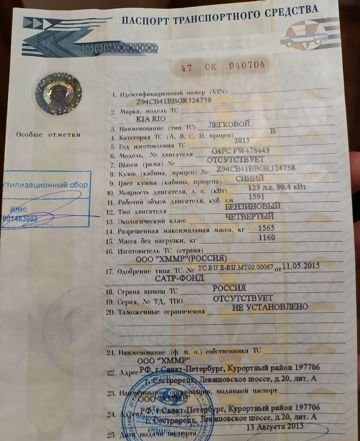 ПАСПОРТ ТРАНСПОРТНОГО СРЕДСТВА
47 ОК 940704
Особые отметки
Утилизационный сбор
ИНН:
1. Идентификационный номер (VIN)
Z94CB41BBGR324758
2. Марка, модель ТС
KIA RIO
3. Наименование (тип ТС)
ЛЕГКОВОЙ
4. Категория ТС (А, В, С, D, прицеп)
В
5. Год изготовления ТС
2015
6. Модель, № двигателя
G4FC FW478443
7. Шасси (рама) №
ОТСУТСТВУЕТ
8. Кузов (кабина, прицеп) №
Z94CB41BBGR324758
9. Цвет кузова (кабины, прицепа)
СИНИЙ
10. Мощность двигателя, л. с. (кВт)
123 л.с. 90.4 кВт
11. Рабочий объем двигателя, куб. см
1591
12. Тип двигателя
БЕНЗИНОВЫЙ
13. Экологический класс
ЧЕТВЕРТЫЙ
14. Разрешенная максимальная масса, кг
1565
15. Масса без нагрузки, кг
1160
16. Изготовитель ТС (страна)
ООО "ХММР"(РОССИЯ)
17. Одобрение типа ТС №
ТС RU E-RU.MT02.00067 от 11.05.2015
САТР-ФОНД
18. Страна вывоза ТС
РОССИЯ
19. Серия, № ТД, ТПО
ОТСУТСТВУЕТ
20. Таможенные ограничения
НЕ УСТАНОВЛЕНО
21. Наименование (ф. и. о.) собственника ТС
ООО "ХММР"
22. Адрес
РФ, г.Санкт-Петербург, Курортный район 197706
г. Сестрорецк, Левашовское шоссе, д.20, лит. А
23. Наименование организации, выдавшей паспорт
ООО "ХММР"
24. Адрес
РФ, г.Санкт-Петербург, Курортный район 197706
г. Сестрорецк, Левашовское шоссе, д.20, лит. А
25. Дата выдачи паспорта
13 Августа 2015